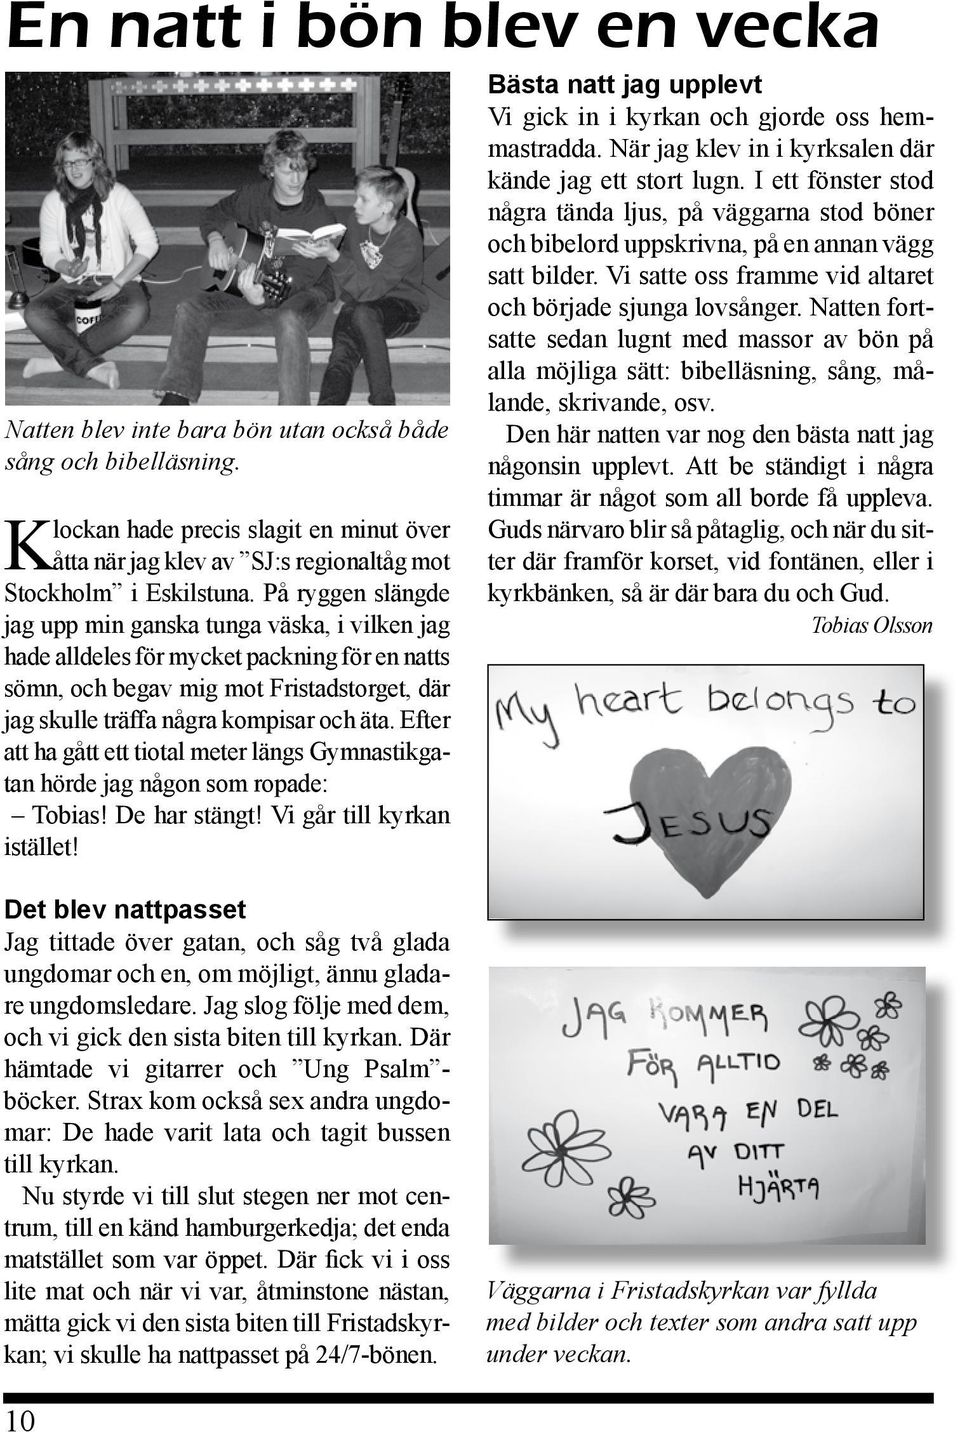 En natt i bön blev en vecka
COFFE
Natten blev inte bara bön utan också både
sång och bibelläsning.
Klockan hade precis slagit en minut över
åtta när jag klev av ”SJ:s regionaltåg mot
Stockholm” i Eskilstuna. På ryggen slängde
jag upp min ganska tunga väska, i vilken jag
hade alldeles för mycket packning för en natts
sömn, och begav mig mot Fristadstorget, där
jag skulle träffa några kompisar och äta. Efter
att ha gått ett tiotal meter längs Gymnastikga-
tan hörde jag någon som ropade:
– Tobias! De har stängt! Vi går till kyrkan
istället!
Det blev nattpasset
Jag tittade över gatan, och såg två glada
ungdomar och en, om möjligt, ännu glada-
re ungdomsledare. Jag slog följe med dem,
och vi gick den sista biten till kyrkan. Där
hämtade vi gitarrer och ”Ung Psalm”-
böcker. Strax kom också sex andra ungdo-
mar: De hade varit lata och tagit bussen
till kyrkan.
Nu styrde vi till slut stegen ner mot cen-
trum, till en känd hamburgerkedja; det enda
matstället som var öppet. Där fick vi i oss
lite mat och när vi var, åtminstone nästan,
mätta gick vi den sista biten till Fristadskyr-
kan; vi skulle ha nattpasset på 24/7-bönen.
Bästa natt jag upplevt
Vi gick in i kyrkan och gjorde oss hem-
mastradda. När jag klev in i kyrksalen där
kände jag ett stort lugn. I ett fönster stod
några tända ljus, på väggarna stod böner
och bibelord uppskrivna, på en annan vägg
satt bilder. Vi satte oss framme vid altaret
och började sjunga lovsånger. Natten fort-
satte sedan lugnt med massor av bön på
alla möjliga sätt: bibelläsning, sång, må-
lande, skrivande, osv.
Den här natten var nog den bästa natt jag
någonsin upplevt. Att be ständigt i några
timmar är något som all borde få uppleva.
Guds närvaro blir så påtaglig, och när du sit-
ter där framför korset, vid fontänen, eller i
kyrkbänken, så är där bara du och Gud.
Tobias Olsson
My heart belongs to
JESUS
JAG KOMMER
FÖR ALLTID
VARA EN DEL
AV DITT
HJÄRTA
Väggarna i Fristadskyrkan var fyllda
med bilder och texter som andra satt upp
under veckan.
10